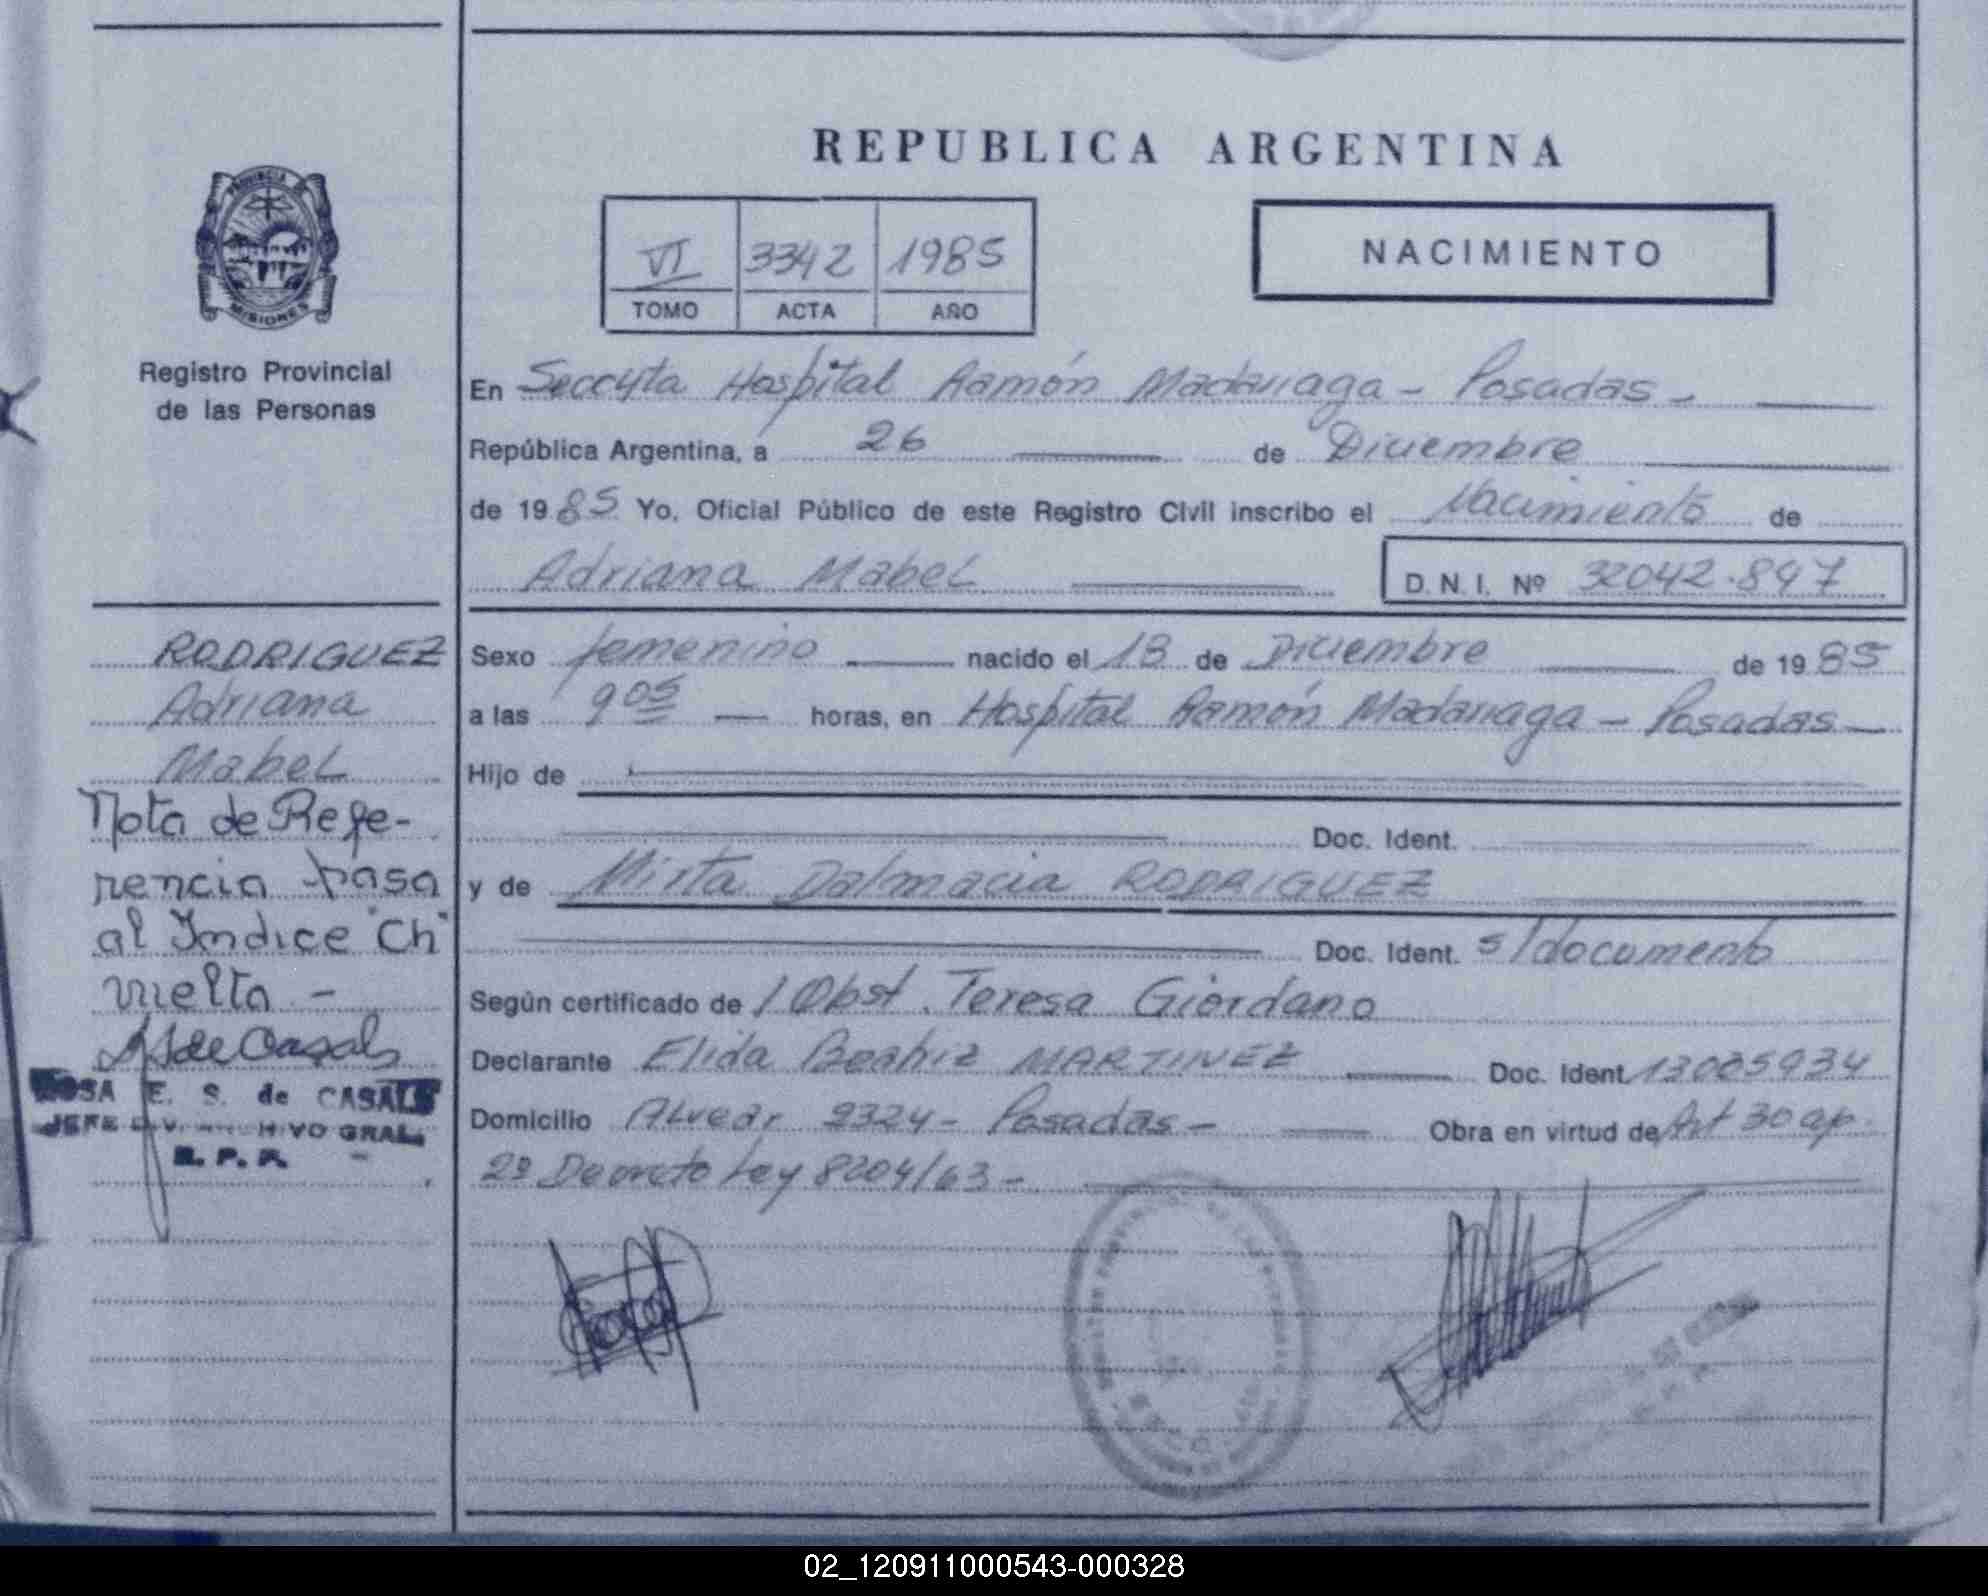 REPUBLICA ARGENTINA
VI 3342 1985
TOMO ACTA AÑO
NACIMIENTO
PROVINCIA DE
MISIONES
Registro Provincial
de las Personas
En Seccyta Hospital Ramón Madariaga - Posadas -
República Argentina, a 26 de Diciembre
de 1985 Yo, Oficial Público de este Registro Civil inscribo el Nacimiento de
Adriana Mabel
D. N. I. Nº 32042.847
Sexo femenino nacido el 13 de Diciembre de 1985
a las 9 05 horas, en Hospital Ramón Madariaga - Posadas -
Hijo de
Doc. Ident.
y de Mirta Dalmacia RODRIGUEZ
Doc. Ident. s/documento
Según certificado de / Obst. Teresa Giordano
Declarante Elida Beatriz MARTINEZ Doc. Ident. 13005934
Domicilio Alvear 2324 - Posadas - Obra en virtud de Art 30 ap.
2º Decreto Ley 8204/63 -
RODRIGUEZ
Adriana
Mabel
Nota de Refe-
rencia pasa
al Indice "Ch"
vuelta. -
ROSA E. S. de CASALS
JEFE DIV. ARCHIVO GRAL.
R. P. P.
02_120911000543-000328